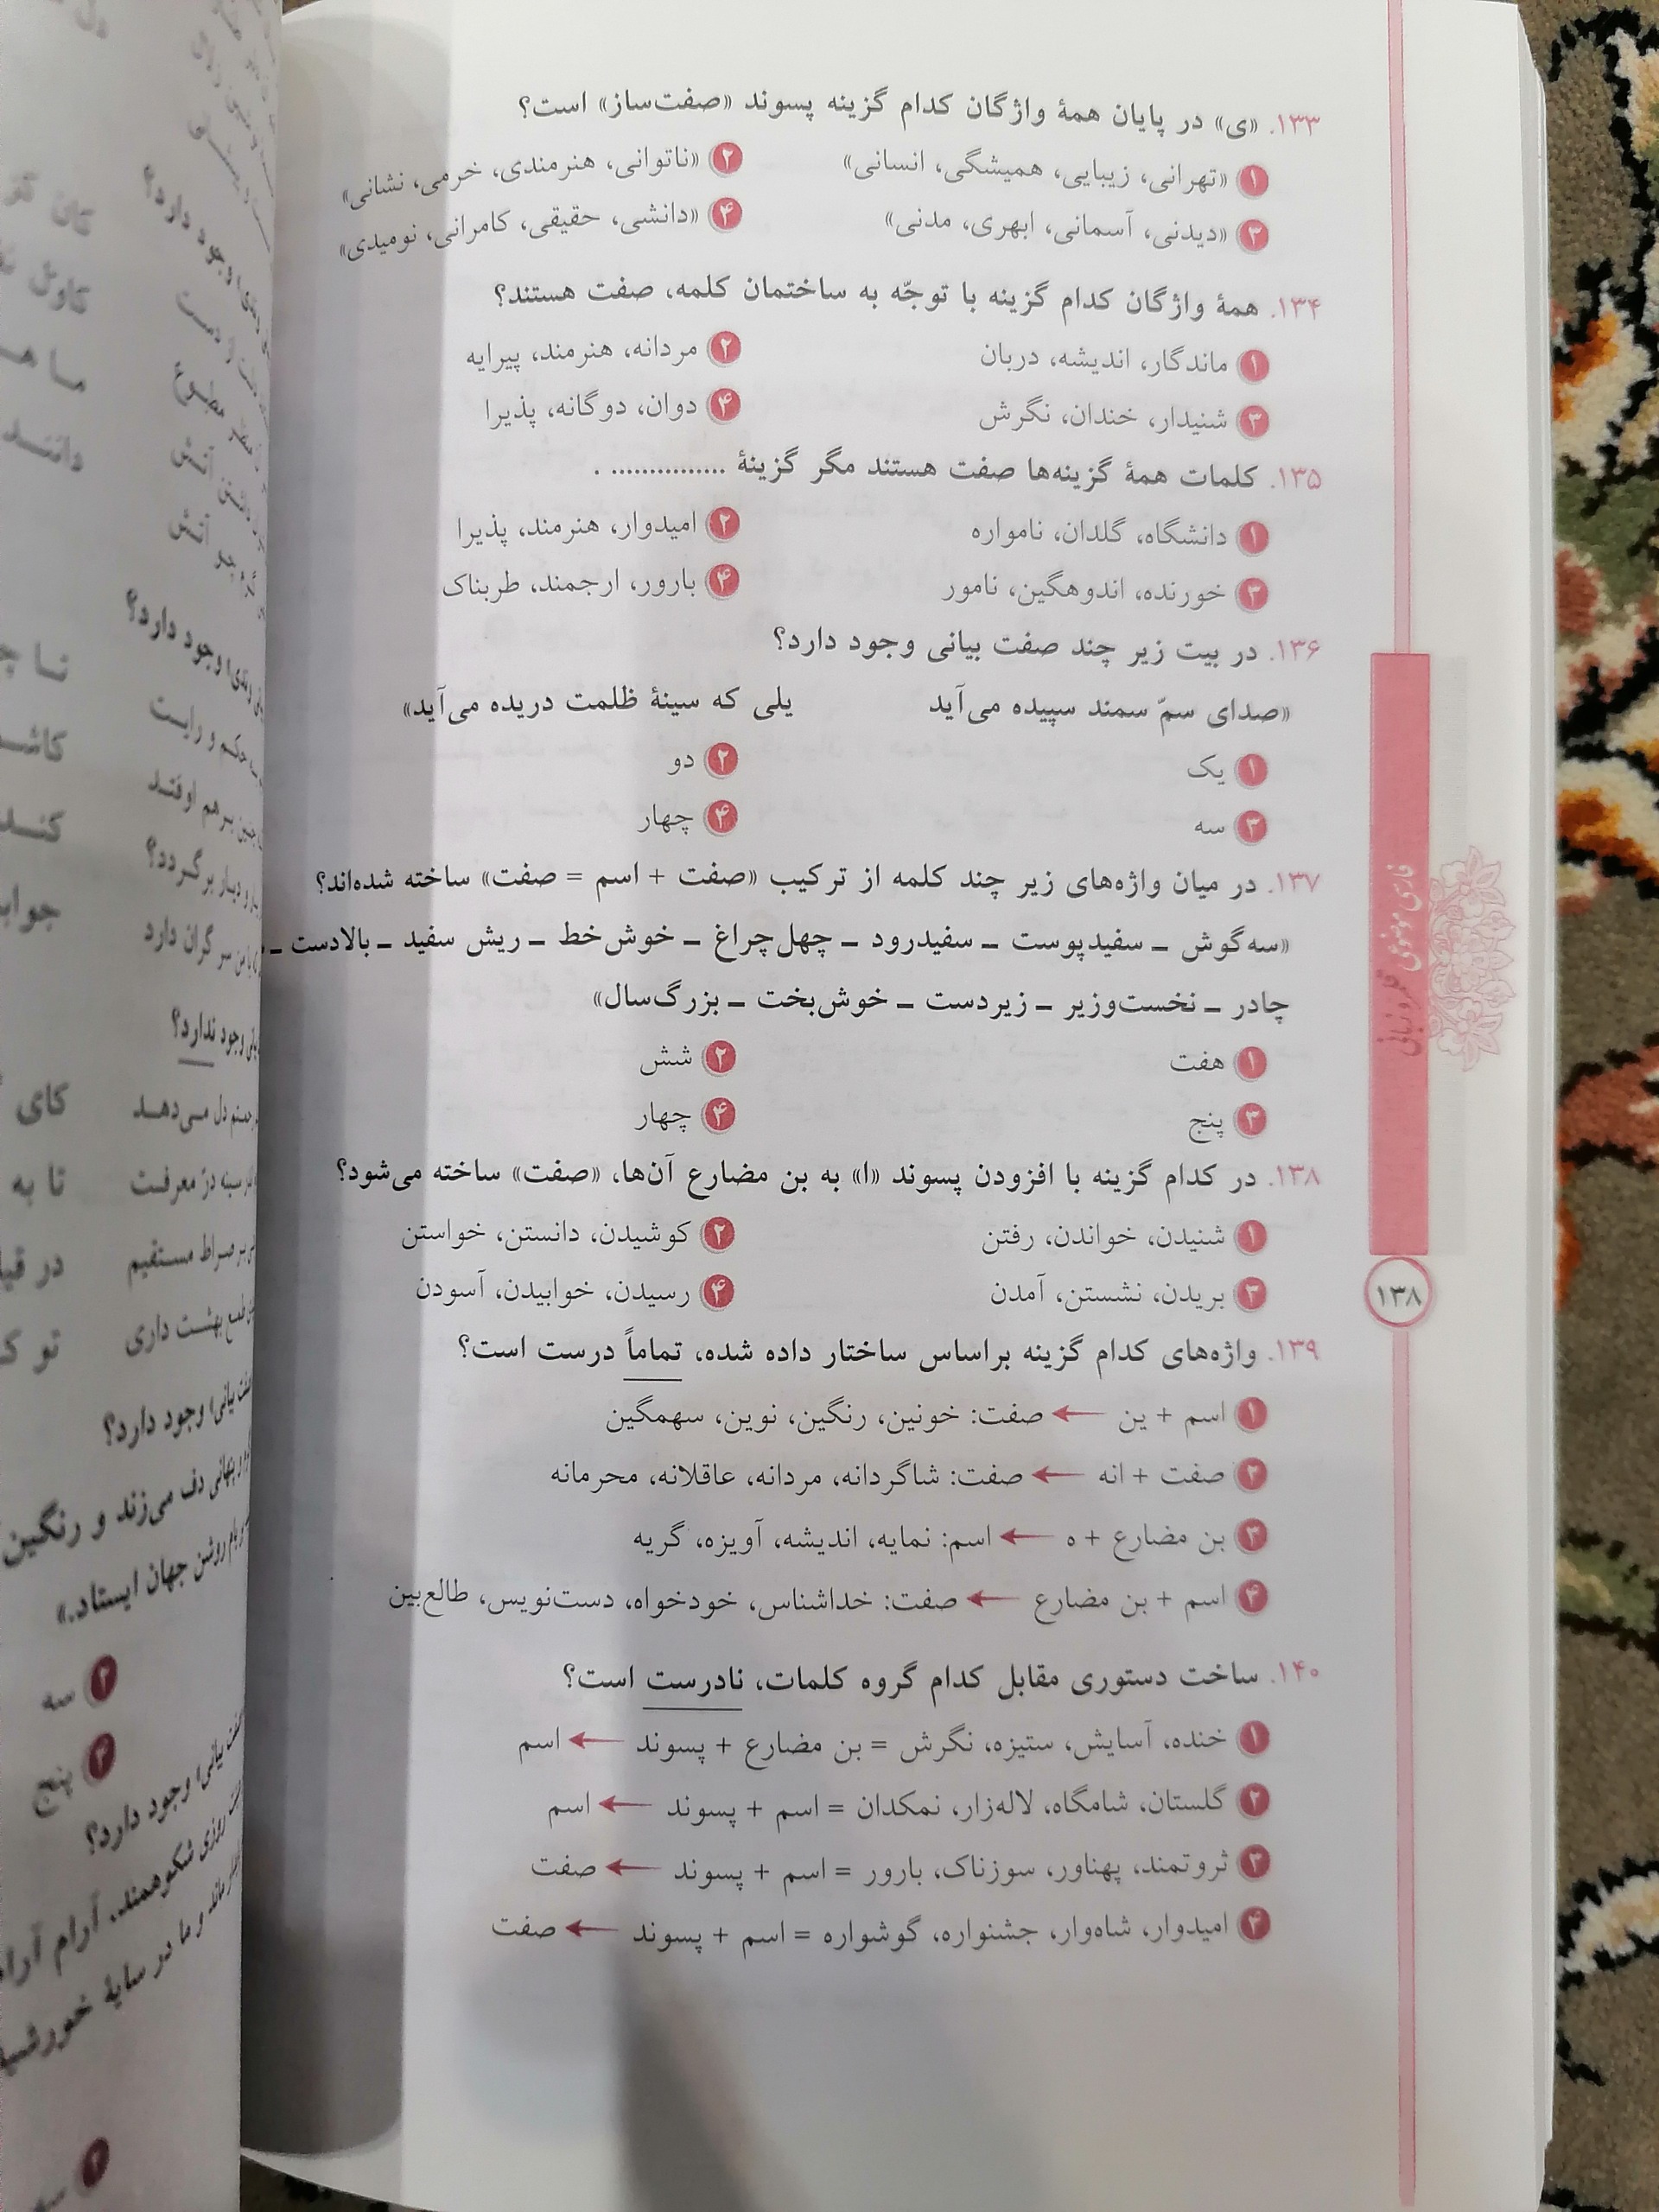 ۱۳۳. «ی» در پایان همهٔ واژگان کدام گزینه پسوند «صفت‌ساز» است؟
۱ «تهرانی، زیبایی، همیشگی، انسانی» ۲ «ناتوانی، هنرمندی، خرمی، نشانی»
۳ «دیدنی، آسمانی، ابهری، مدنی» ۴ «دانشی، حقیقی، کامرانی، نومیدی»
۱۳۴. همهٔ واژگان کدام گزینه با توجّه به ساختمان کلمه، صفت هستند؟
۱ ماندگار، اندیشه، دربان ۲ مردانه، هنرمند، پیرایه
۳ شنیدار، خندان، نگرش ۴ دوان، دوگانه، پذیرا
۱۳۵. کلمات همهٔ گزینه‌ها صفت هستند مگر گزینهٔ ............... .
۱ دانشگاه، گلدان، نامواره ۲ امیدوار، هنرمند، پذیرا
۳ خورنده، اندوهگین، نامور ۴ بارور، ارجمند، طربناک
۱۳۶. در بیت زیر چند صفت بیانی وجود دارد؟
«صدای سمّ سمند سپیده می‌آید یلی که سینهٔ ظلمت دریده می‌آید»
۱ یک ۲ دو
۳ سه ۴ چهار
۱۳۷. در میان واژه‌های زیر چند کلمه از ترکیب «صفت + اسم = صفت» ساخته شده‌اند؟
«سه‌گوش ـ سفیدپوست ـ سفیدرود ـ چهل‌چراغ ـ خوش‌خط ـ ریش سفید ـ بالادست ـ
چادر ـ نخست‌وزیر ـ زیردست ـ خوش‌بخت ـ بزرگ‌سال»
۱ هفت ۲ شش
۳ پنج ۴ چهار
۱۳۸. در کدام گزینه با افزودن پسوند «ا» به بن مضارع آن‌ها، «صفت» ساخته می‌شود؟
۱ شنیدن، خواندن، رفتن ۲ کوشیدن، دانستن، خواستن
۳ بریدن، نشستن، آمدن ۴ رسیدن، خوابیدن، آسودن
۱۳۹. واژه‌های کدام گزینه براساس ساختار داده شده، تماماً درست است؟
۱ اسم + ین ← صفت: خونین، رنگین، نوین، سهمگین
۲ صفت + انه ← صفت: شاگردانه، مردانه، عاقلانه، محرمانه
۳ بن مضارع + ه ← اسم: نمایه، اندیشه، آویزه، گریه
۴ اسم + بن مضارع ← صفت: خداشناس، خودخواه، دست‌نویس، طالع‌بین
۱۴۰. ساخت دستوری مقابل کدام گروه کلمات، نادرست است؟
۱ خنده، آسایش، ستیزه، نگرش = بن مضارع + پسوند ← اسم
۲ گلستان، شامگاه، لاله‌زار، نمکدان = اسم + پسوند ← اسم
۳ ثروتمند، پهناور، سوزناک، بارور = اسم + پسوند ← صفت
۴ امیدوار، شاه‌وار، جشنواره، گوشواره = اسم + پسوند ← صفت
فارسی موضوعی
قلمرو زبانی
۱۳۸
وجود دارد؟
وجود دارد؟
برگردد؟
سر گران دارد
وجود ندارد؟
دل می‌دهد
معرفت
صراط مستقیم
بهشت داری
وجود دارد؟
دف می‌زند و رنگین
روشن جهان ایستاد.»
۲ سه
۴ پنج
وجود دارد؟
روزی شکوهمند، آرام آرام
و ما در سایهٔ خورشید